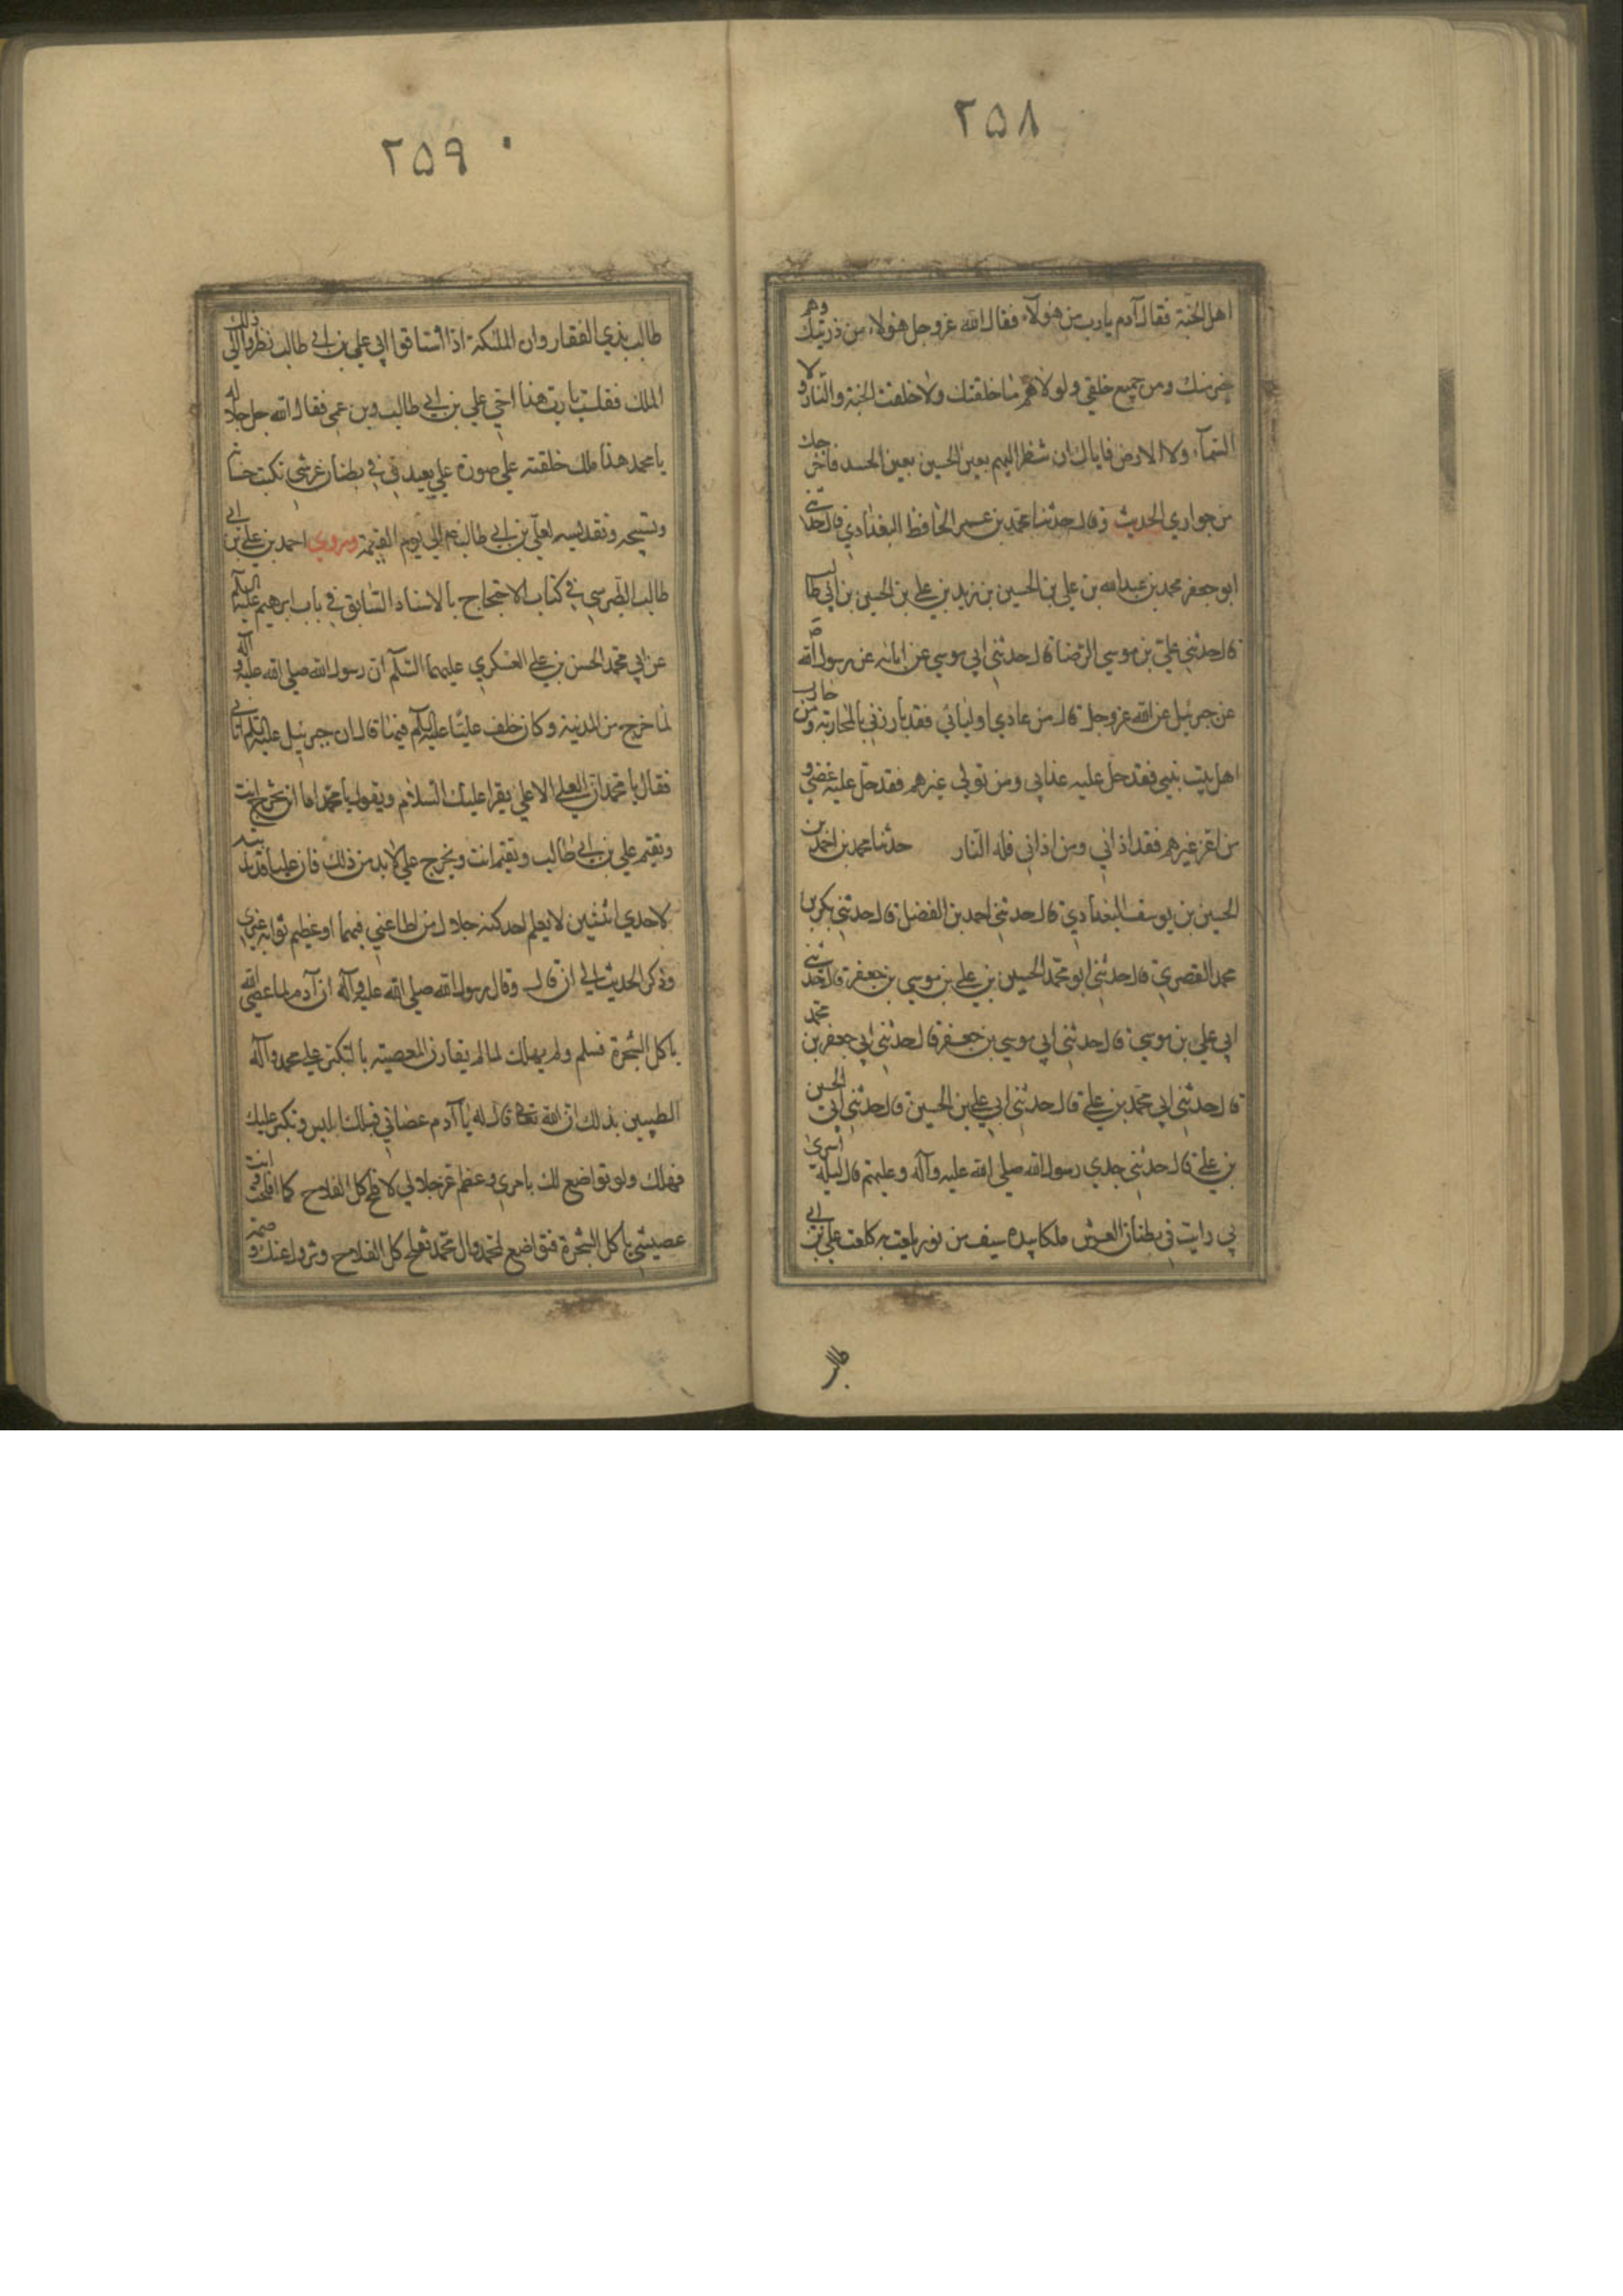 ۲۵۸
اهل الجنة فقال آدم يا رب من هولآء فقال الله عز وجل هولاء من ذريتك وهم
خير منك ومن جميع خلقي ولولاهم ما خلقتك ولا خلقت الجنة والنار ولا
السمآء ولا الارض فاياك ان تنظر اليهم بعين الحسد فاخرجك
من جواري الحديث وقال حدثنا محمد بن عمر الحافظ البغدادي قال حدثني
ابو جعفر محمد بن عبدالله بن علي بن الحسين بن زيد بن علي بن الحسين بن ابي طالب
قال حدثني علي بن موسي الرضا قال حدثني ابي موسي عن ابائه عن رسول الله ص
عن جبرئيل عن الله عز وجل قال من عادي اوليائي فقد بارزني بالمحاربة ومن حارب
اهل بيت نبيي فقد حل عليه عذابي ومن تولي غيرهم فقد حل عليه غضبي و
من اعز غيرهم فقد اذاني ومن اذاني فله النار حدثنا محمد بن احمد بن
الحسين بن يوسف البغدادي قال حدثني احمد بن الفضل قال حدثني بكر بن
محمد القصري قال حدثني ابو محمد الحسين بن علي بن موسي بن جعفر قال حدثني
ابي علي بن موسي قال حدثني ابي موسي بن جعفر قال حدثني ابي جعفر بن محمد
قال حدثني ابي محمد بن علي قال حدثني ابي علي بن الحسين قال حدثني ابي الحسين
بن علي قال حدثني جدي رسول الله صلي الله عليه وآله وعليهم قال ليلة اسرى
بي رايت في بطنان العرش ملكا بيده سيف من نور يلعب به كما لعب علي بن ابي
طالب
۲۵۹
طالب بذي الفقار وان الملئكة اذا اشتاقوا الي علي بن ابي طالب نظروا الي ذلك
الملك فقلت يا رب هذا اخي علي بن ابي طالب وبن عمي فقال الله جل جلاله
يا محمد هذا ملك خلقته علي صورة علي يعبدني في بطنان عرشي تكتب حسناته
وتسبيحه وتقديسه لعلي بن ابي طالب ع الي يوم القيمة وروي احمد بن علي بن ابي
طالب الطبرسي في كتاب الاحتجاج بالاسناد السابق في باب ابرهيم عليه السلام
عن ابي محمد الحسن بن علي العسكري عليهما السلام ان رسول الله صلي الله عليه وآله
لما خرج من المدينة وكان خلف عليا عليه السلام فيها قال ان جبرئيل عليه السلام اتاني
فقال يا محمد ان العلي الاعلي يقرا عليك السلام ويقول يا محمد اما ان تخرج انت
ويقيم علي بن ابي طالب وتقيم انت ويخرج علي لا بد من ذلك فان عليا قد ندبته
لاحدي اثنتين لا يعلم احد كنه جلال من اطاعني فيهما او عظيم ثوابه غيري
وذكر الحديث الي ان قال وقال رسول الله صلي الله عليه وآله ان آدم لما عصي الله
باكل الشجرة فسلم ولم يهلك لما لم يقارن المعصية بالتكبر علي محمد وآله
الطيبين بذلك ان الله تعالي قال له يا آدم عصاني فيك ابليس وتكبر عليك
فهلك ولو تواضع لك بامري وعظم عز جلالي لافلح كل الفلاح كما افلحت وانت
عصيتني باكل الشجرة فتواضع لمحمد وال محمد تفلح كل الفلاح وتزول عنك وصمة